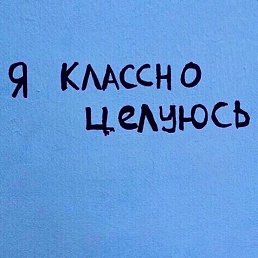 Я КЛАССНО
ЦЕЛУЮСЬ